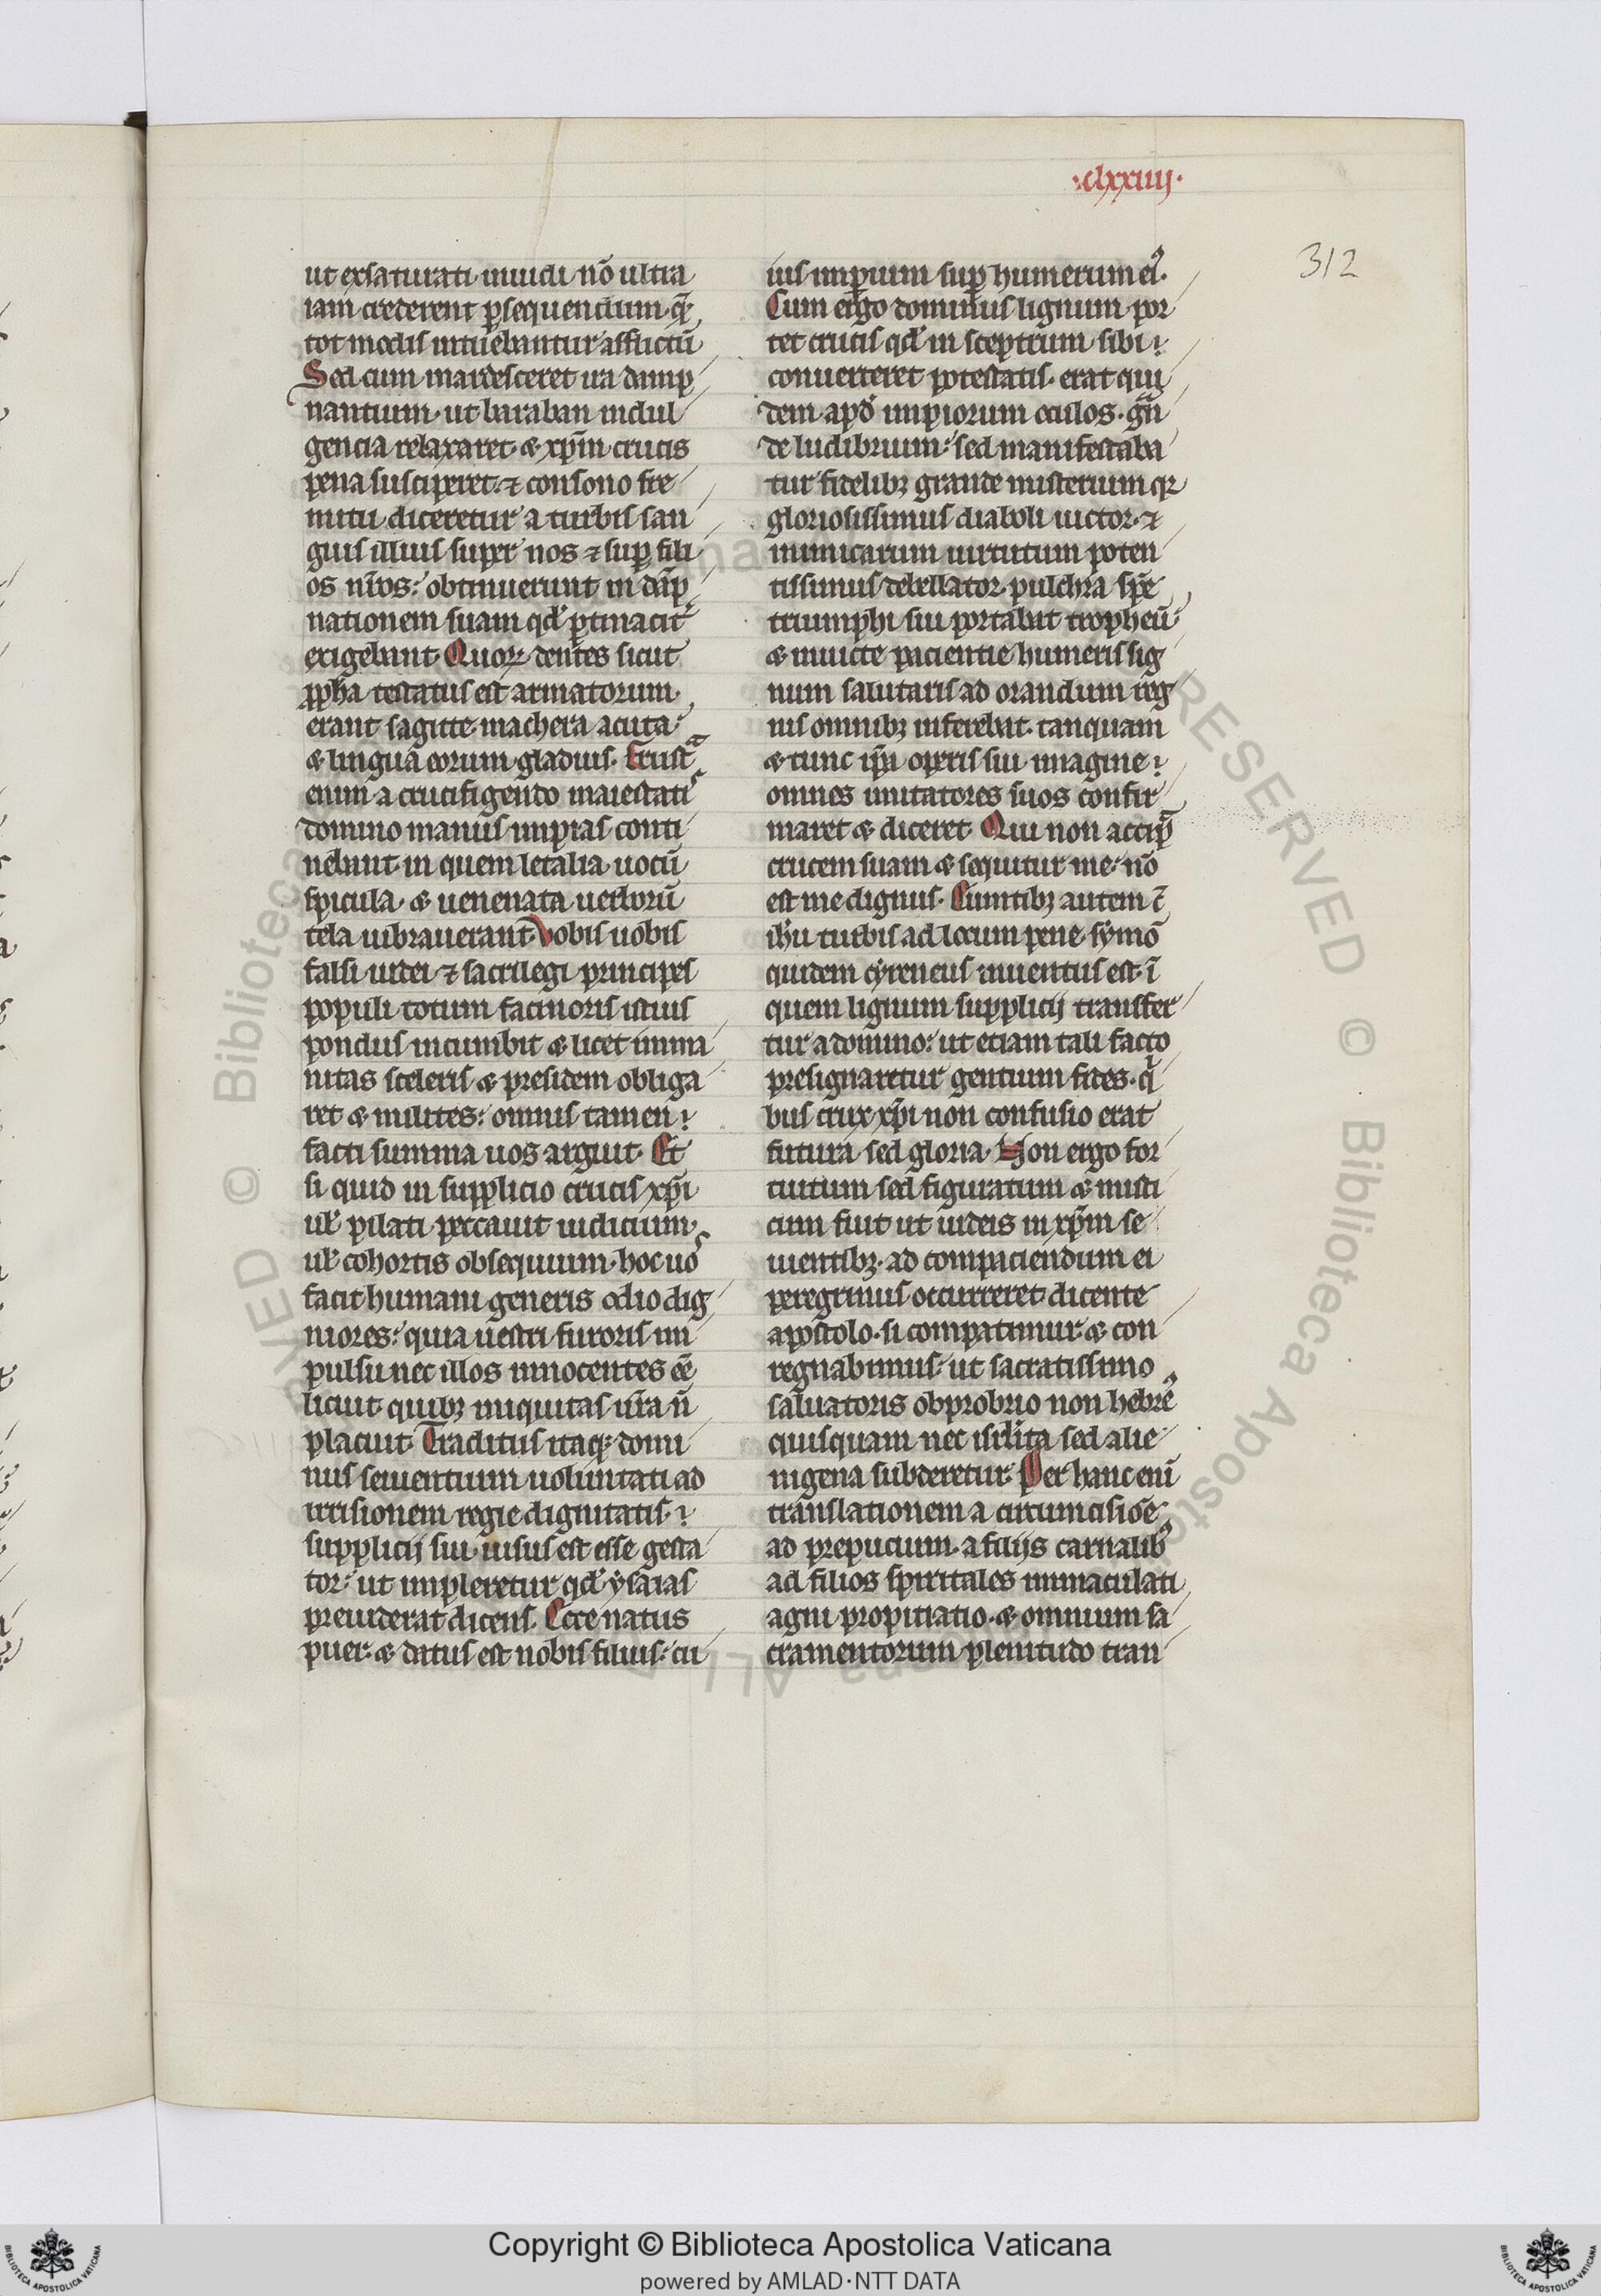 ·clxxiiij·
312
ut exsaturati inuidi nō ultra
iam crederent ꝑsequendum· qē
tot modis intuebantur afflictū
Sed cum inardesceret ira damp
nantium· ut baraban indul
gencia relaxaret· & xp̄m crucis
pena susciperet· ⁊ consono fre
mitu diceretur a turbis san
guis illius super nos ⁊ suꝑ fili
os nr̄os: obtinuerunt in dāp
nationem suam qd̓ ꝑtinacit̓
exigebant· Quoꝝ dentes sicut
ꝓpha testatus est armatorum·
erant sagitte· machera acuta·
& lingua eorum gladius· Frustᵃ
enim a crucifigendo maiestatiˢ
domino manus impias conti
nebant· in quem letalia uocū
spicula· & uenenata uerborū
tela uibrauerant· Vobis uobis
falsi iudei ⁊ sacrilegi principes
populi totum facinoris istius
pondus incumbit & licet inma
nitas sceleris & presidem obliga
ret & milites: omnis tamen
facti summa uos arguit· Et
si quid in supplicio crucis xp̄i
ul̓ pilati peccauit iudicium·
ul̓ cohortis obsequium· hoc uoˢ
facit humani generis odio dig
niores: quia uestri furoris im
pulsu nec illos innocentes eē
licuit quibꝫ iniquitas ur̄a n̄
placuit· Traditus itaqꝫ domi
nus seuientium uoluntati ad
irrisionem regie dignitatis·
supplicij sui iussus est esse gesta
tor· ut impleretur qd̓ ysaias
preuiderat dicens· Ecce natus
puer· & datus est nobis filius· cu
ius imꝑium suꝑ humerum ei᾽·
Cum ergo dominus lignum por
tet crucis qd̓ in sceptrum sibi
conuerteret potestatis· erat qui
dem apd̓ impiorum oculos· gᵃn
de ludibrium: sed manifestaba
tur fidelibꝫ grande misterium qꝛ
gloriosissimus diaboli uictor· ⁊
inimicarum uirtutum poten
tissimus debellator· pulchra spē
triumphi sui portabat tropheū·
& inuicte paciencie humeris sig
num salutaris ad orandum reg
nis omnibꝫ inferebat· tanquam
& tunc ip̄a operis sui imagine
omnes imitatores suos confir
maret & diceret· Qui non accip̄
crucem suam & sequitur me· nō
est me dignus· Euntibꝫ autem c̄
ih̄u turbis ad locum pene· symō
quidem cyreneus inuentus est· ī
quem lignum supplicij transfer
tur a domino: ut etiam tali facto
presignaretur gentium fides· qⁱ
bus crux xp̄i non confusio erat
futura sed gloria· Non ergo for
tuitum sed figuratum & misti
cum fuit ut iudeis in xp̄m se
uientibꝫ· ad compaciendum ei
peregrinus occurreret· dicente
apostolo· si compatimur· & con
regnabimus· ut sacratissimo
saluatoris obprobrio non hebre᾽
quisquam nec isrl̓ita sed alie
nigena subderetur· Per hanc enī
translationem a circumcisiōe
ad prepucium· a filijs carnalib᾽
ad filios spiritales inmaculati
agni propitiatio· & omnium sa
cramentorum plenitudo tran
Copyright © Biblioteca Apostolica Vaticana
powered by AMLAD·NTT DATA